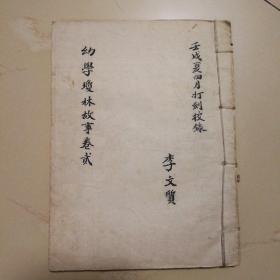 壬戌夏四月打刻校錄
李文質
幼學瓊林故事卷貳